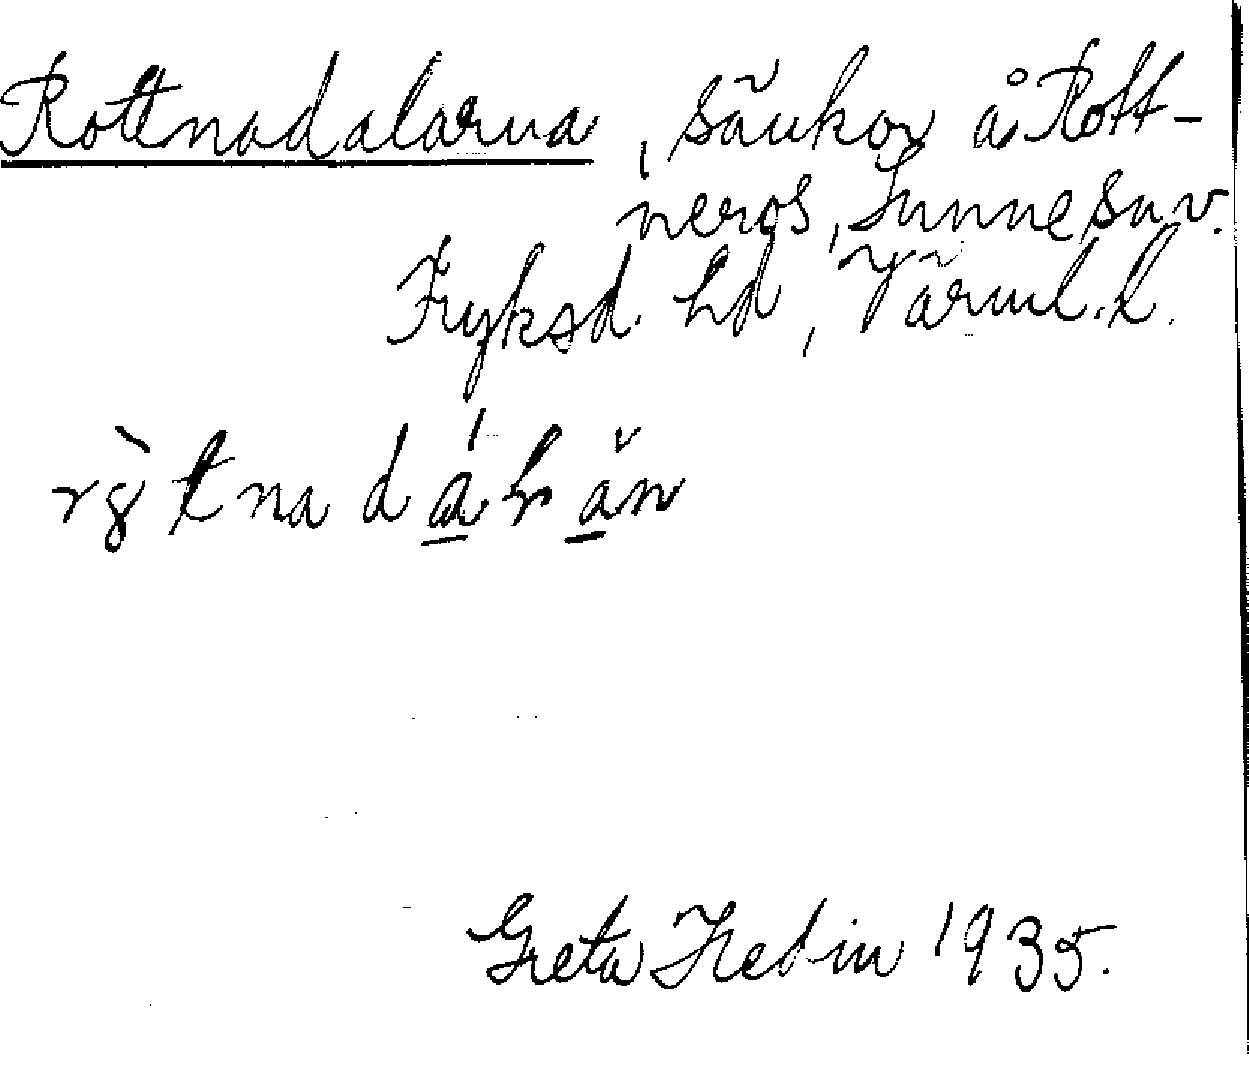 Rottnadalarna, sänkor å Rott-
neros, Sunne sn v.
Fryksd. hd, Värml. l.
Greta Hedin 1935.